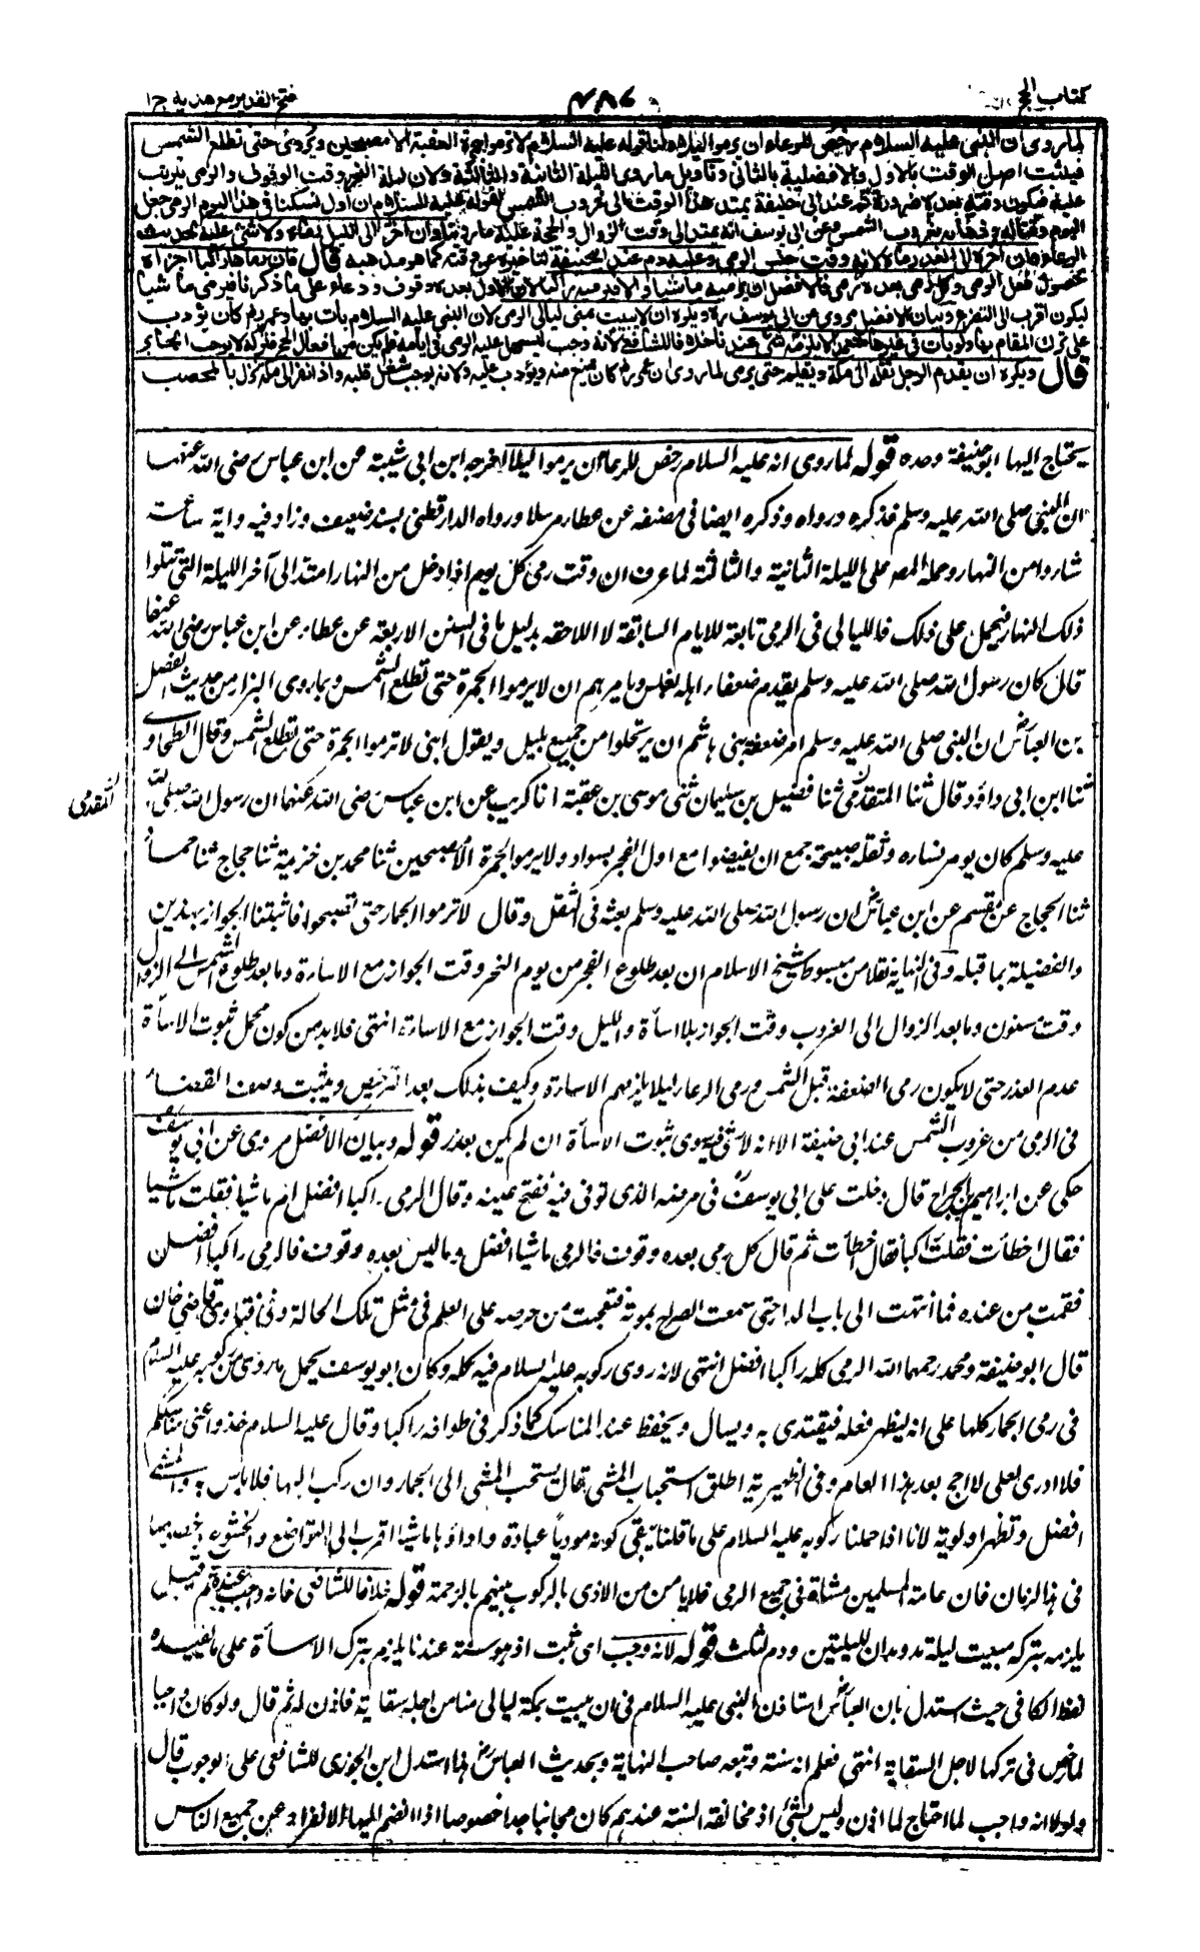 كتاب الحج
٤٨٦
فتح القدير مع هدايه ج١
لما روى ان النبى عليه السلام رخص للرعاء ان يرموا ليلا ولنا قوله عليه السلام لا ترموا جمرة العقبة الا مصبحين ويروى حتى تطلع الشمس
فيثبت اصل الوقت بالاول والافضلية بالثانى وتاويل ما روى الليلة الثانية والثالثة ولان ليلة النحر وقت الوقوف والرمى يترتب
عليه فيكون وقته بعده ضرورة ثم عند ابى حنيفة يمتد هذا الوقت الى غروب الشمس لقوله عليه السلام ان اول نسكنا فى هذا اليوم الرمى جعل
اليوم وقتا له وذهابه بغروب الشمس وعن ابى يوسف انه يمتد الى وقت الزوال والحجة عليه ما روينا وان اخر الى الليل رماه ولا شئ عليه لحديث
الرعاء وان اخره الى الغد رماه لانه وقت جنس الرمى وعليه دم عند ابى حنيفة لتاخيره عن وقته كما هو مذهبه قال فان رماها راكبا اجزاه
لحصول فعل الرمى وكل رمى بعده رمى فالافضل ان يرميه ماشيا والا فيرميه راكبا لان الاول بعده وقوف ودعاء على ما ذكرنا فيرمى ماشيا
ليكون اقرب الى التضرع وبيان الافضل مروى عن ابى يوسف ره ويكره ان لا يبيت بمنى ليالى الرمى لان النبى عليه السلام بات بها وعمر رض كان يؤدب
على ترك المقام بها ولو بات فى غيرها متعمدا لا يلزمه شئ عندنا خلافا للشافعى لانه وجب ليسهل عليه الرمى فى ايامه فلم يكن من افعال الحج فتركه لا يوجب الجابر
قال ويكره ان يقدم الرجل ثقله الى مكة ويقيم حتى يرمى لما روى ان عمر رض كان يمنع منه ويؤدب عليه ولانه يوجب شغل قلبه واذا نفر الى مكة نزل بالمحصب
يحتاج اليها ابو حنيفة وحده قوله لما روى انه عليه السلام رخص للرعاء ان يرموا ليلا اخرجه ابن ابى شيبة عن ابن عباس رضى الله عنهما
ان النبى صلى الله عليه وسلم فذكره ورواه وذكره ايضا فى مصنفه عن عطاء مرسلا ورواه الدارقطنى بسند ضعيف وزاد فيه واية ساعت
شاروا من النهار وحمله المصـ على الليلة الثانية والثالثة لما عرف ان وقت رمى كل يوم اذا دخل من النهار امتد الى آخر الليلة التى تتلوا
ذلك النهار فيحمل على ذلك فالليالى فى الرمى تابعة للايام السابقة لا اللاحقة بدليل ما فى السنن الاربعة عن عطاء عن ابن عباس رضى الله عنهما
قال كان رسول الله صلى الله عليه وسلم يقدم ضعفاء اهله بغلس ويامرهم ان لا يرموا الجمرة حتى تطلع الشمس وبما روى البزار من حديث الفضل
بن العباس ان النبى صلى الله عليه وسلم امر ضعفة بنى هاشم ان يرتحلوا من جميع بليل ويقول ابنى لا ترموا الجمرة حتى تطلع الشمس وقال الطحاوى
ثنا ابن ابى داؤد قال ثنا المقدمى ثنا فضيل بن سليمان ثنى موسى بن عقبة انا كريب عن ابن عباس رضى الله عنهما ان رسول الله صلى الله
المقدمى
عليه وسلم كان يومر نساره وثقله صبيحة جمع ان يفيضوا مع اول الفجر بسواد ولا يرموا الجمرة الا مصبحين ثنا محمد بن خزيمة ثنا حجاج ثنا حماد
ثنا الحجاج عن مقسم عن ابن عباس ان رسول الله صلى الله عليه وسلم بعثه فى الثقل وقال لا ترموا الجمار حتى تصبحوا فاثبتنا الجواز بهذين
والفضيلة بما قبله وفى النهاية نقلا من مبسوط شيخ الاسلام ان بعد طلوع الفجر من يوم النحر وقت الجواز مع الاسارة وما بعد طلوع الشمس الى الزوال
وقت مسنون وما بعد الزوال الى الغروب وقت الجواز بلا اسأة والليل وقت الجواز مع الاسارة انتهى فلا بد من كون محمل ثبوت الاسأة
عدم العذر حتى لا يكون رمى الضعفة قبل الشمس ورمى الرعاء ليلا يلزمهم الاسارة وكيف بذلك بعد الترخيص ويثبت وصف القضاء
فى الرمى من غروب الشمس عند ابى حنيفة الا انه لا شئ فيه سوى ثبوت الاسأة ان لم يكن بعذر قوله وبيان الافضل مروى عن ابى يوسف
حكى عن ابراهيم بن الجراح قال دخلت على ابى يوسف فى مرضه الذى توفى فيه ففتح عينه وقال الرمى راكبا افضل ام ماشيا فقلت ماشيا
فقال اخطأت فقلت راكبا فقال اخطأت ثم قال كل رمى بعده وقوف فالرمى ماشيا افضل وما ليس بعده وقوف فالرمى راكبا افضل
فقمت من عنده فما انتهت الى باب الدار حتى سمعت الصراخ بموته فتعجبت من حرصه على العلم فى مثل تلك الحالة وفى فتاوى قاضى خان
قال ابو حنيفة ومحمد رحمهما الله الرمى كله راكبا افضل انتهى لانه روى ركوبه عليه السلام فيه كله وكان ابو يوسف يحمل ما روى من ركوبه عليه السلام
فى رمى الجمار كلها على انه ليظهر فعله فيقتدى به ويسال ويحفظ عنه المناسك كما ذكر فى طوافه راكبا وقال عليه السلام خذوا عنى مناسككم
فلا ادرى لعلى لا احج بعد هذا العام وفى الظهيرية اطلق استحباب المشى قال يستحب المشى الى الجمار وان ركب اليها فلا باس به والمشى
افضل وتظهر اولوية لانا اذا حملنا ركوبه عليه السلام على ما قلنا يبقى كونه موديا عبادة واداؤها ماشيا اقرب الى التواضع والخشوع وخصوصا
فى هذا الزمان فان عامة المسلمين مشاة فى جميع الرمى فلا يامن من الاذى بالركوب بينهم بالزحمة قوله خلافا للشافعى فانه واجب عنده ثم قيل
يلزمه بتركه مبيت ليلة مد ومدان لليلتين ودم لثلث قوله لانه وجب اى ثبت اذ هو سنة عندنا يلزم بتركه الاسأة على ما يفيده
لفظ الكافى حيث استدل بان العباس استاذن النبى عليه السلام فى ان يبيت بمكة ليالى منا من اجل سقاية فاذن له ثم قال ولو كان واجبا
لما رخص فى تركها لاجل السقاية انتهى فعلم انه سنة وتبعه صاحب النهاية وبحديث العباس رض هذا استدل ابن الجوزى للشافعى على الوجوب قال
ولولا انه واجب لما احتاج لما اذن وليس بشئ اذ مخالفة السنة عندهم كان مجانبا جدا خصوصا اذا انضم اليها الانفراد عن جميع الناس